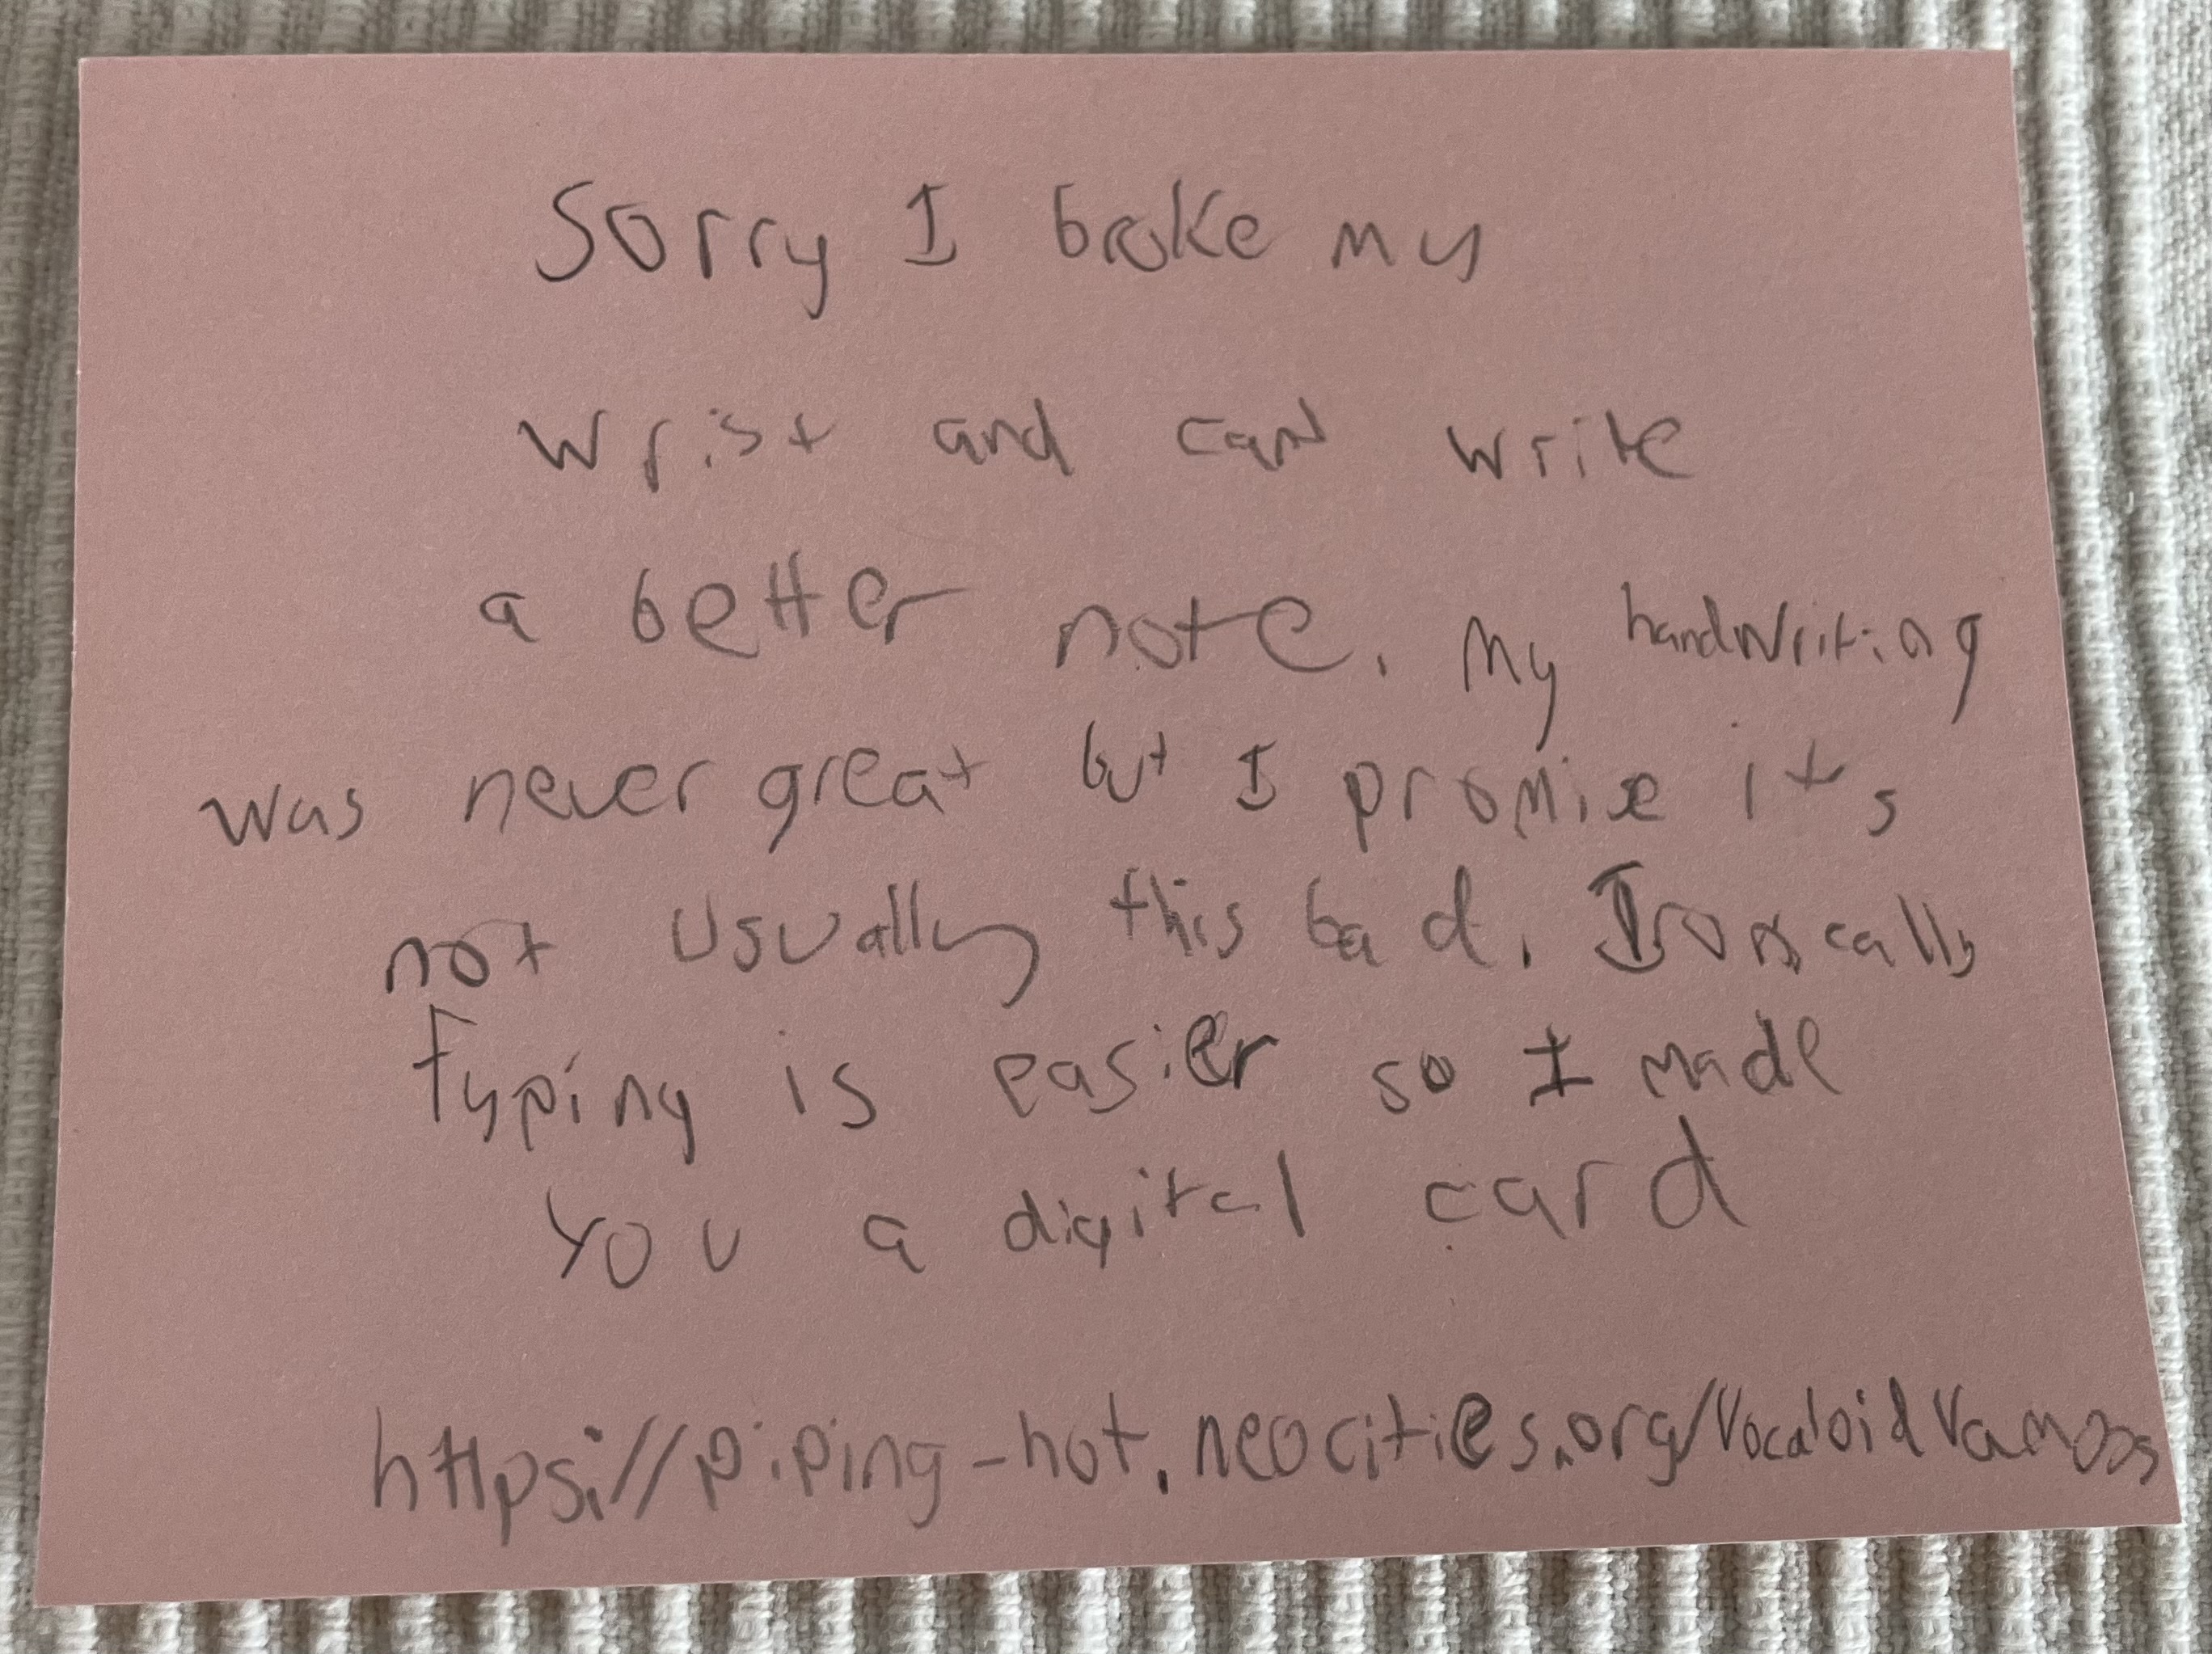 Sorry I broke my
wrist and cant write
a better note. My handwriting
was never great but I promise its
not usually this bad. Ironically
typing is easier so I made
you a digital card
https://piping-hot.neocities.org/VocaloidVamoos